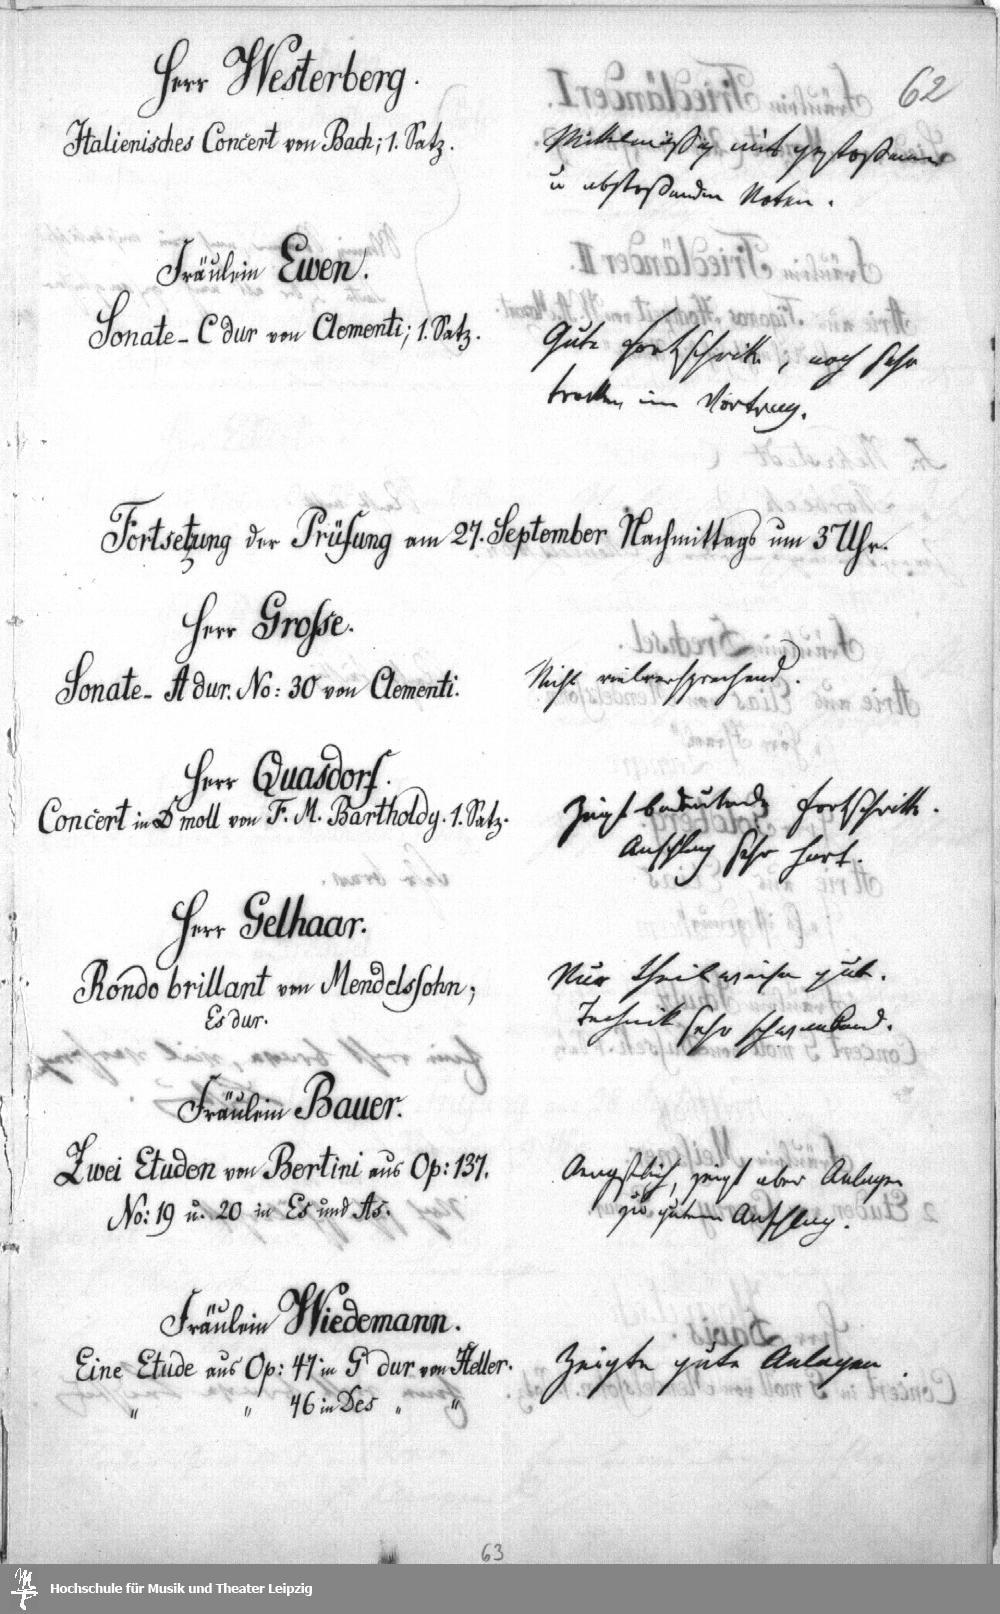 62
Herr Westerberg.
Italienisches Concert von Bach; 1. Satz.
Mittelmäßig mit gestoßenen
u abstoßenden Noten.
Fräulein Ewen.
Sonate - C dur von Clementi; 1. Satz.
Gute Fortschritte, noch sehr
trocken im Vortrag.
Fortsetzung der Prüfung am 27. September Nachmittags um 3 Uhr.
Herr Grosse.
Sonate - A dur. No: 30 von Clementi.
Nicht vielversprechend.
Herr Quasdorf.
Concert in D moll von F. M. Bartholdy. 1. Satz.
Zeigt bedeutende Fortschritte.
Anschlag sehr hart.
Herr Gelhaar.
Rondo brillant von Mendelssohn;
Es dur.
Nur theilweise gut.
Technik sehr schwankend.
Fräulein Bauer.
Zwei Etuden von Bertini aus Op: 137.
No: 19 u. 20 in Es und As.
Aengstlich, zeigt aber Anlagen
zu gutem Anschlag.
Fräulein Wiedemann.
Eine Etude aus Op: 47 in G dur von Heller.
" " 46 in Des " "
Zeigte gute Anlagen.
63
Hochschule für Musik und Theater Leipzig